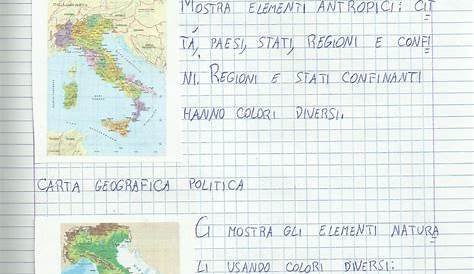 MOSTRA ELEMENTI ANTROPICI: CIT
TÀ, PAESI, STATI, REGIONI E CONFI
NI. REGIONI E STATI CONFINANTI
HANNO COLORI DIVERSI.
CARTA GEOGRAFICA POLITICA
CI MOSTRA GLI ELEMENTI NATURA
LI USANDO COLORI DIVERSI: